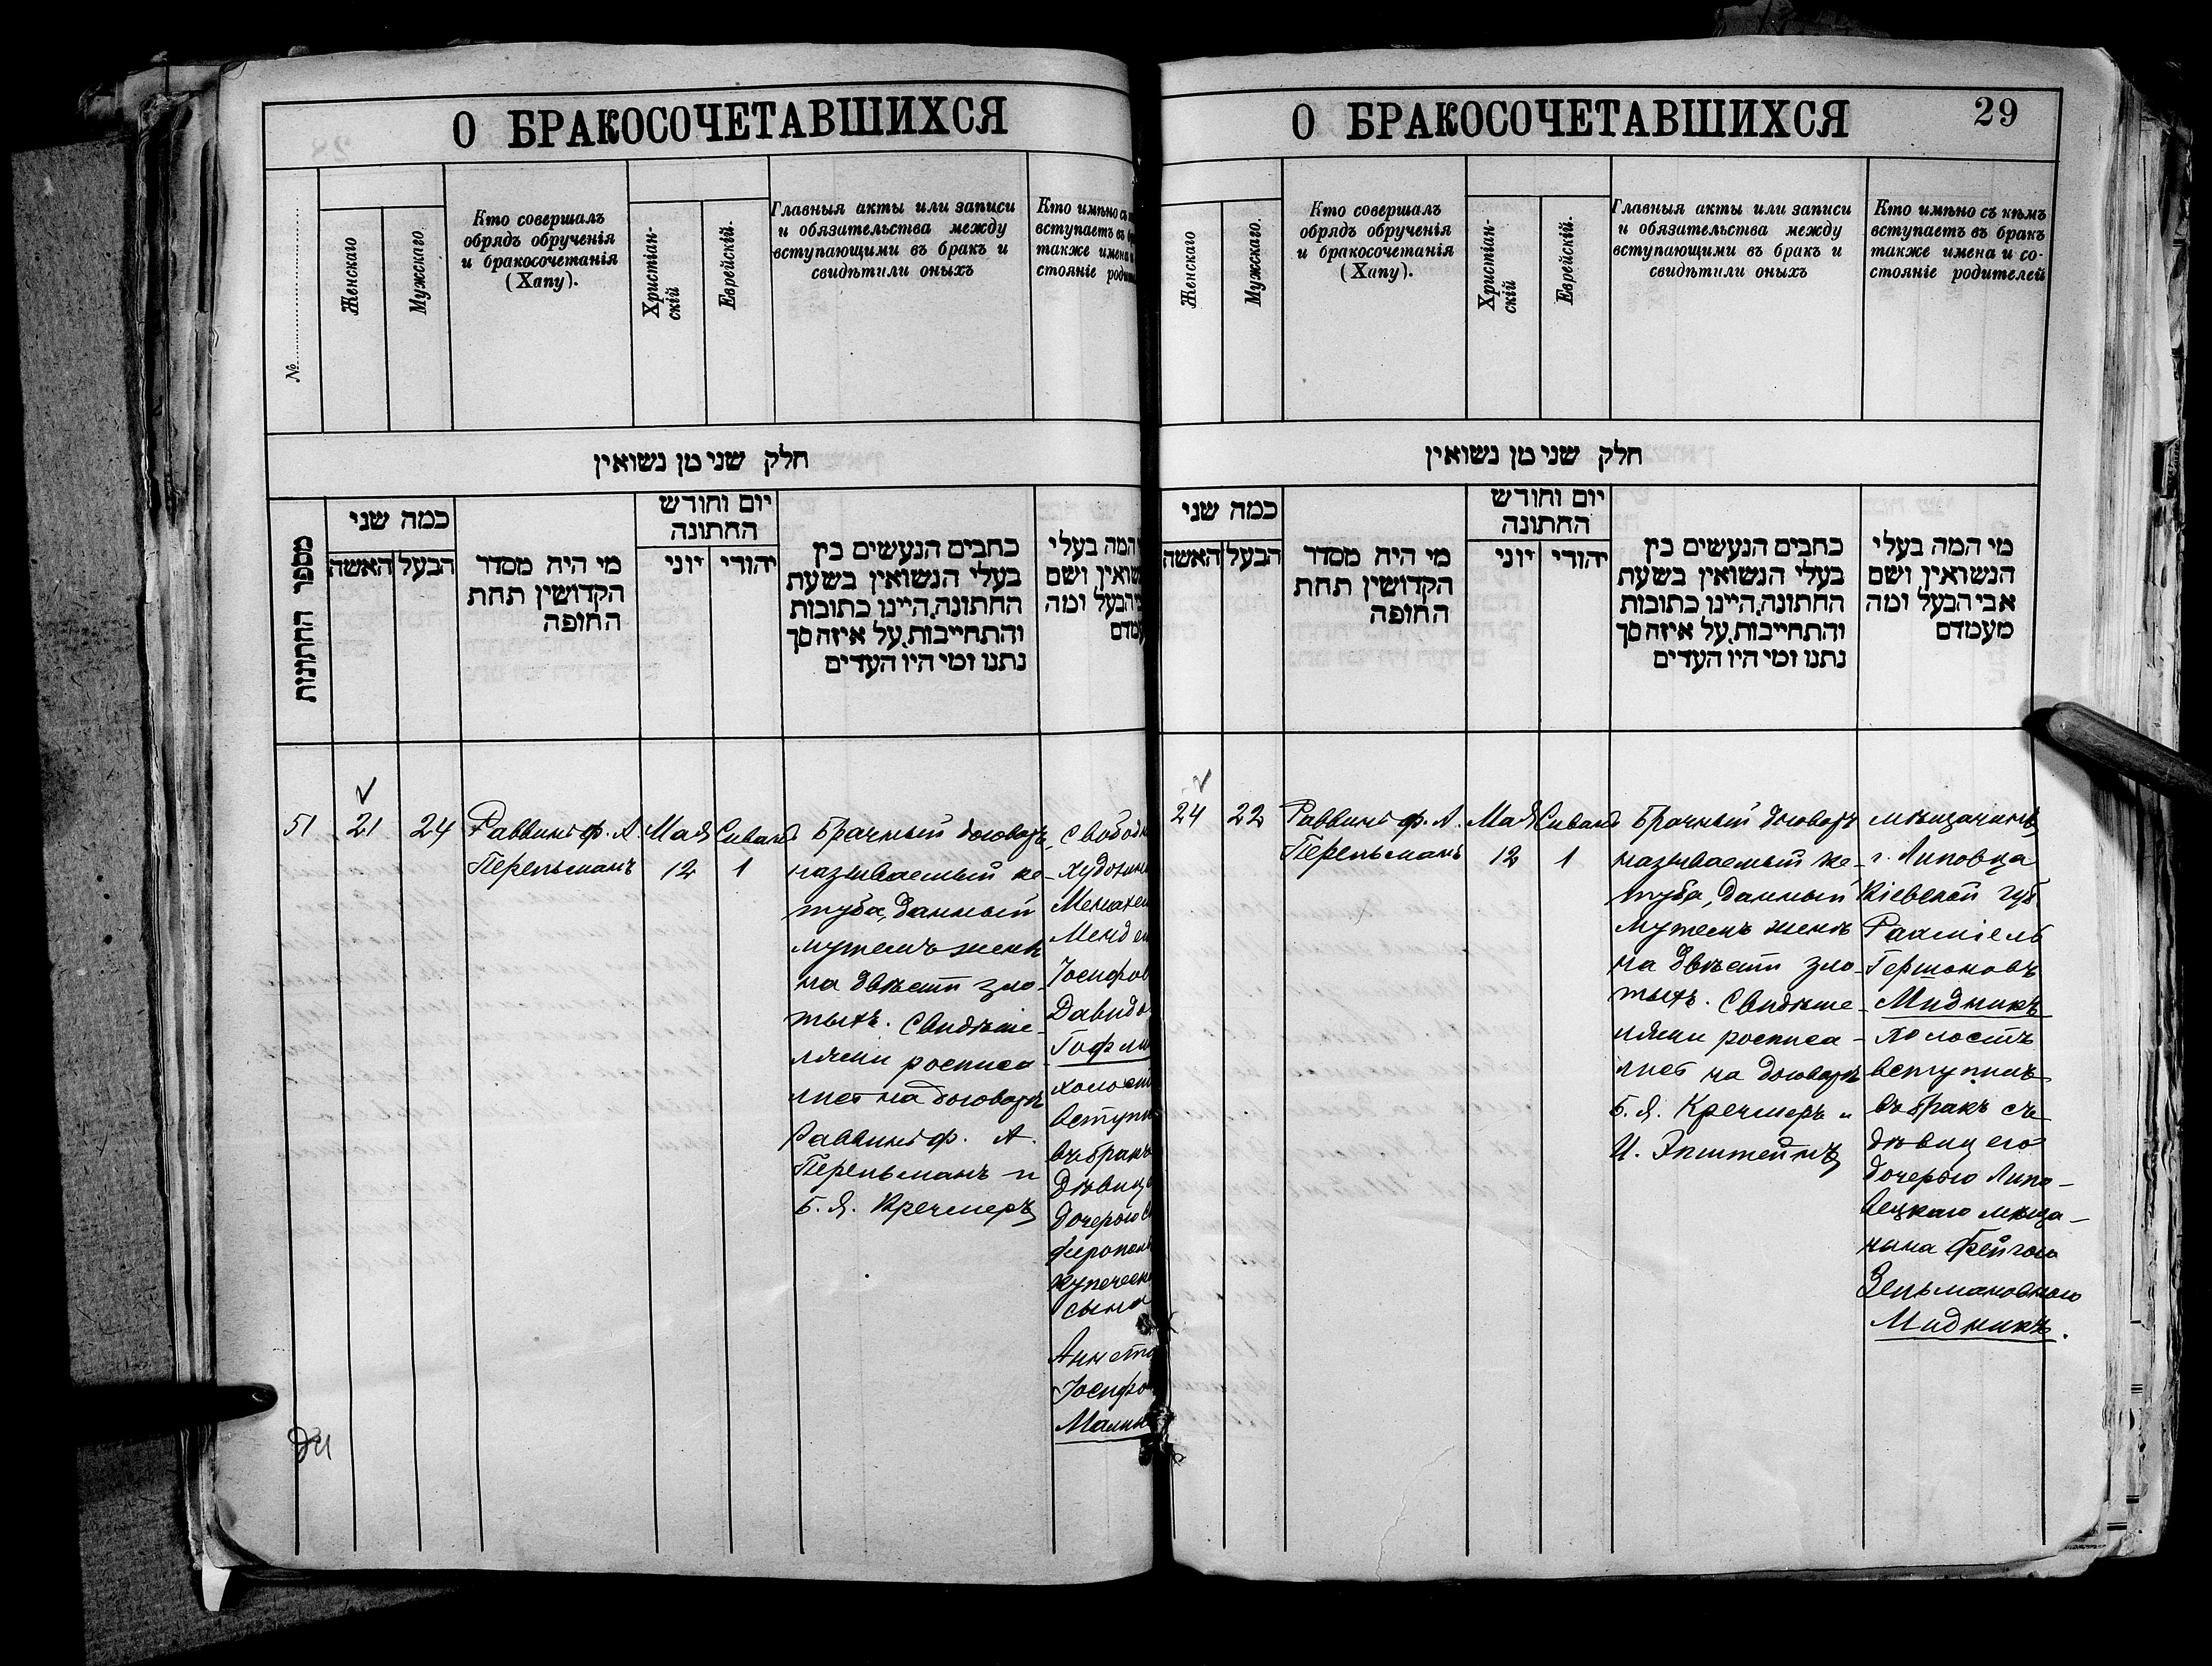 О БРАКОСОЧЕТАВШИХСЯ
№
Женскаго
Мужскаго.
Кто совершалъ
обрядъ обрученія
и бракосочетанія
(Хапу).
Христіан-
скій
Еврейскій.
Главныя акты или записи
и обязательства между
вступающими въ брак и
свидѣтили оныхъ
Кто имѣно съ
вступаетъ въ
также имена и
стояніе
חלק שני מן נשואין
מספר החתונות
כמה שני
האשה
הבעל
מי היה מסדר
הקדושין תחת
החופה
יום וחודש
החתונה
יוני
יהודי
כתבים הנעשים בין
בעלי הנשואין בשעת
החתונה, היינו כתובות
והתחייבות, על איזה סך
נתנו ומי היו העדים
המה בעלי
ושם
הבעל ומה
51
21
24
Раввинъ ф. А
Перельманъ
Мая
12
Сивана
1
Брачный договоръ,
называемый ке-
туба, данный
мужемъ женѣ
на двѣсти зло-
тыхъ. Свидѣте-
лями росписа
лись на договорѣ
Раввинъ ф. А.
Перельманъ и
Б. Я. Кречмеръ
Менд
Давидо
Гоф
холост
вступи
въ бракъ
дѣвице
дочерью
сына
Малин
О БРАКОСОЧЕТАВШИХСЯ
29
Женскаго
Мужскаго.
Кто совершалъ
обрядъ обрученія
и бракосочетанія
(Хапу).
Христіан-
скій
Еврейскій.
Главныя акты или записи
и обязательства между
вступающими въ брак и
свидѣтили оныхъ
Кто имѣно съ кѣмъ
вступаетъ въ бракъ
также имена и со-
стояніе родителей
חלק שני מן נשואין
כמה שני
האשה
הבעל
מי היה מסדר
הקדושין תחת
החופה
יום וחודש
החתונה
יוני
יהודי
כתבים הנעשים בין
בעלי הנשואין בשעת
החתונה, היינו כתובות
והתחייבות, על איזה סך
נתנו ומי היו העדים
מי המה בעלי
הנשואין ושם
אבי הבעל ומה
מעמדם
24
22
Раввинъ ф. А.
Перельманъ
Мая
12
Сивана
1
Брачный договоръ
называемый ке-
туба, данный
мужемъ женѣ
на двѣсти зло-
тыхъ. Свидѣте-
лями росписа-
лись на договорѣ
Б. Я. Кречмеръ и
И. Эпштейнъ
мѣщанинъ
г. Липовца
Кіевской губ.
Рахміель
Гершоновъ
Мидникъ
холостъ
вступилъ
въ бракъ съ
дѣвицею
дочерью Липо-
вецкаго мѣща-
нина Фейгою
Зельмановною
Мидникъ.